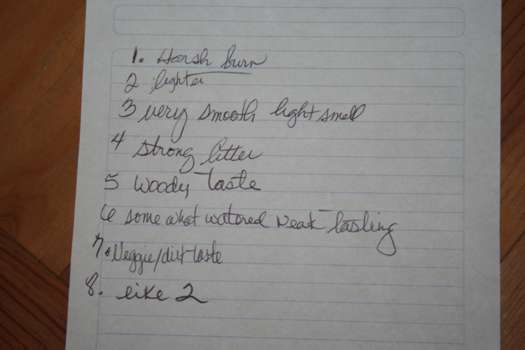 1. Harsh burn
2 lighter
3 very smooth light smell
4 strong bitter
5 woody taste
6 some what watered weak tasting
7. Veggie/dirt taste
8. like 2